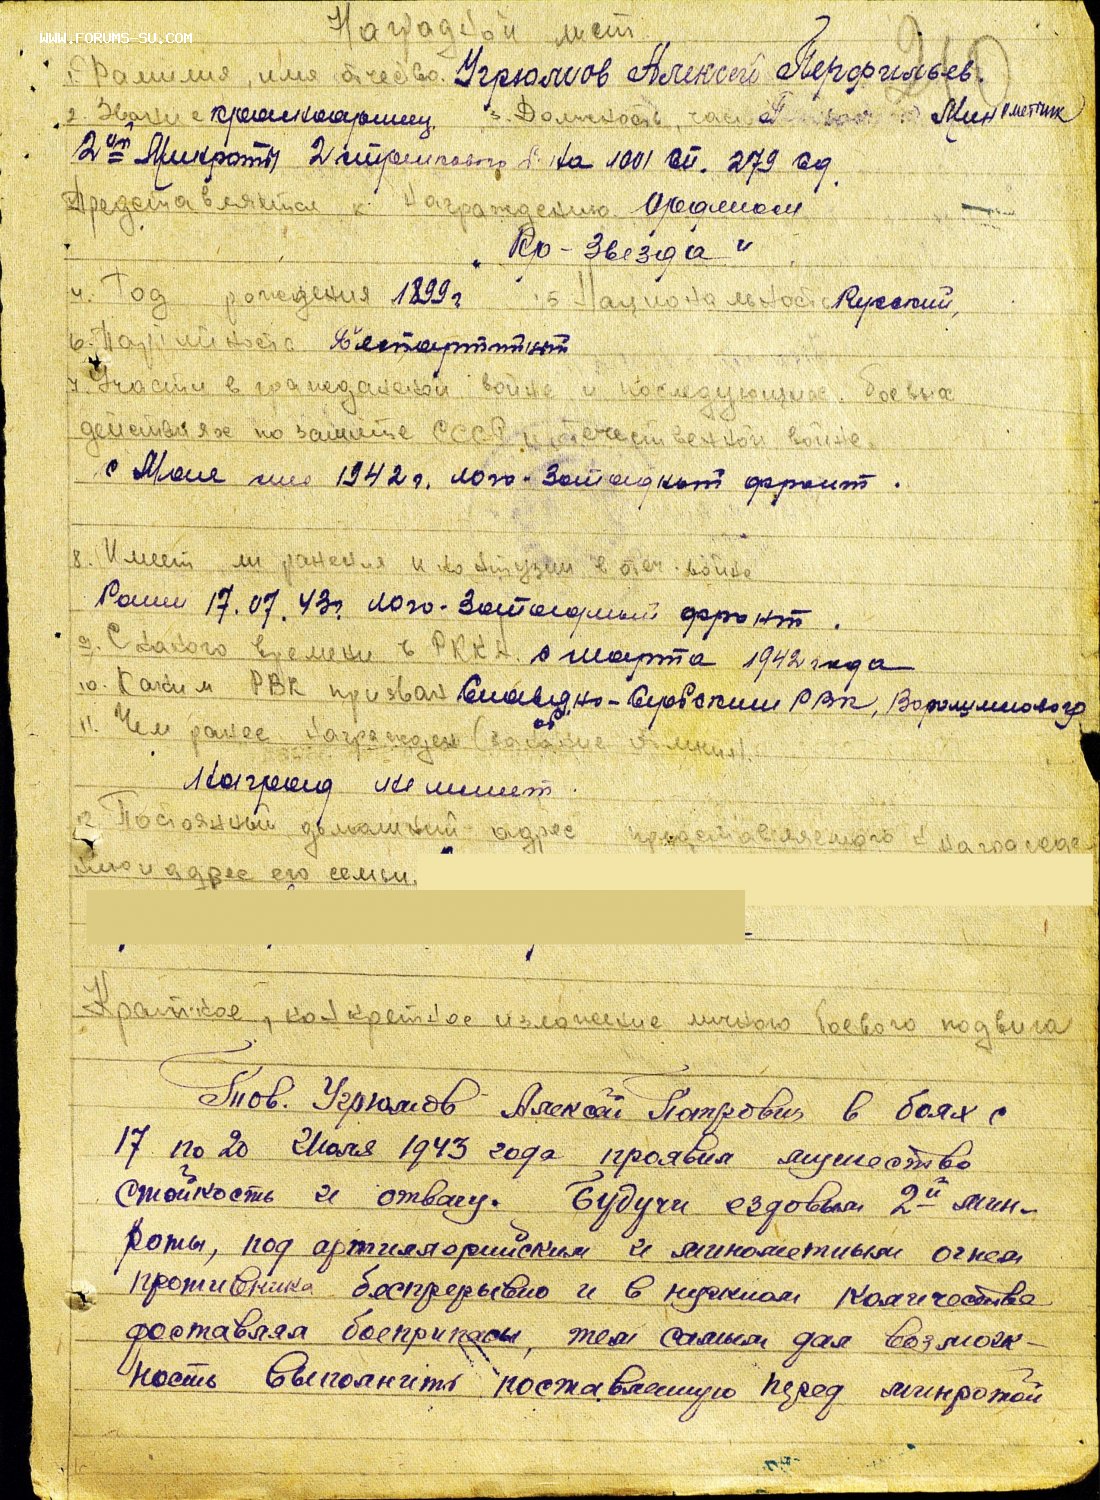 WWW.FORUMS-SU.COM
Наградной лист
240
1. Фамилия, имя отчество. Угрюмов Алексей Перфильев.
2. Звание красноармеец 3. Должность, часть Минометчик
2ой Минроты 2 стрелкового б-на 1001 сп. 279 сд.
Представляется к награждению Орденом
"Кр-Звезда"
4. Год рождения 1899г 5 Национальность Русский,
6. Партийность Беспартийный
7. Участие в гражданской войне и последующих боевых
действиях по защите СССР и отечественной войне.
с Мая 1942 г. Юго-Западный фронт.
8. Имеет ли ранения и контузии в отеч. войне
Ранен 17.07.43г. Юго-Западный фронт.
9. С какого времени в РККА с марта 1942 года
10. Каким РВК призван Славяно-Сербским РВК, Ворошиловогр
об
11. Чем ранее награжден (за какие отличия).
Наград не имеет.
12. Постоянный домашний адрес представляемого к награжде-
нию и адрес его семьи.
Краткое, конкретное изложение личного боевого подвига
Тов. Угрюмов Алексей Петрович в боях с
17 по 20 Июля 1943 года проявил мужество
стойкость и отвагу. Будучи ездовым 2й мин-
роты, под артиллерийским и минометным огнем
противника беспрерывно и в нужном количестве
доставлял боеприпасы, тем самым дал возмож-
ность выполнить поставленную перед минротой